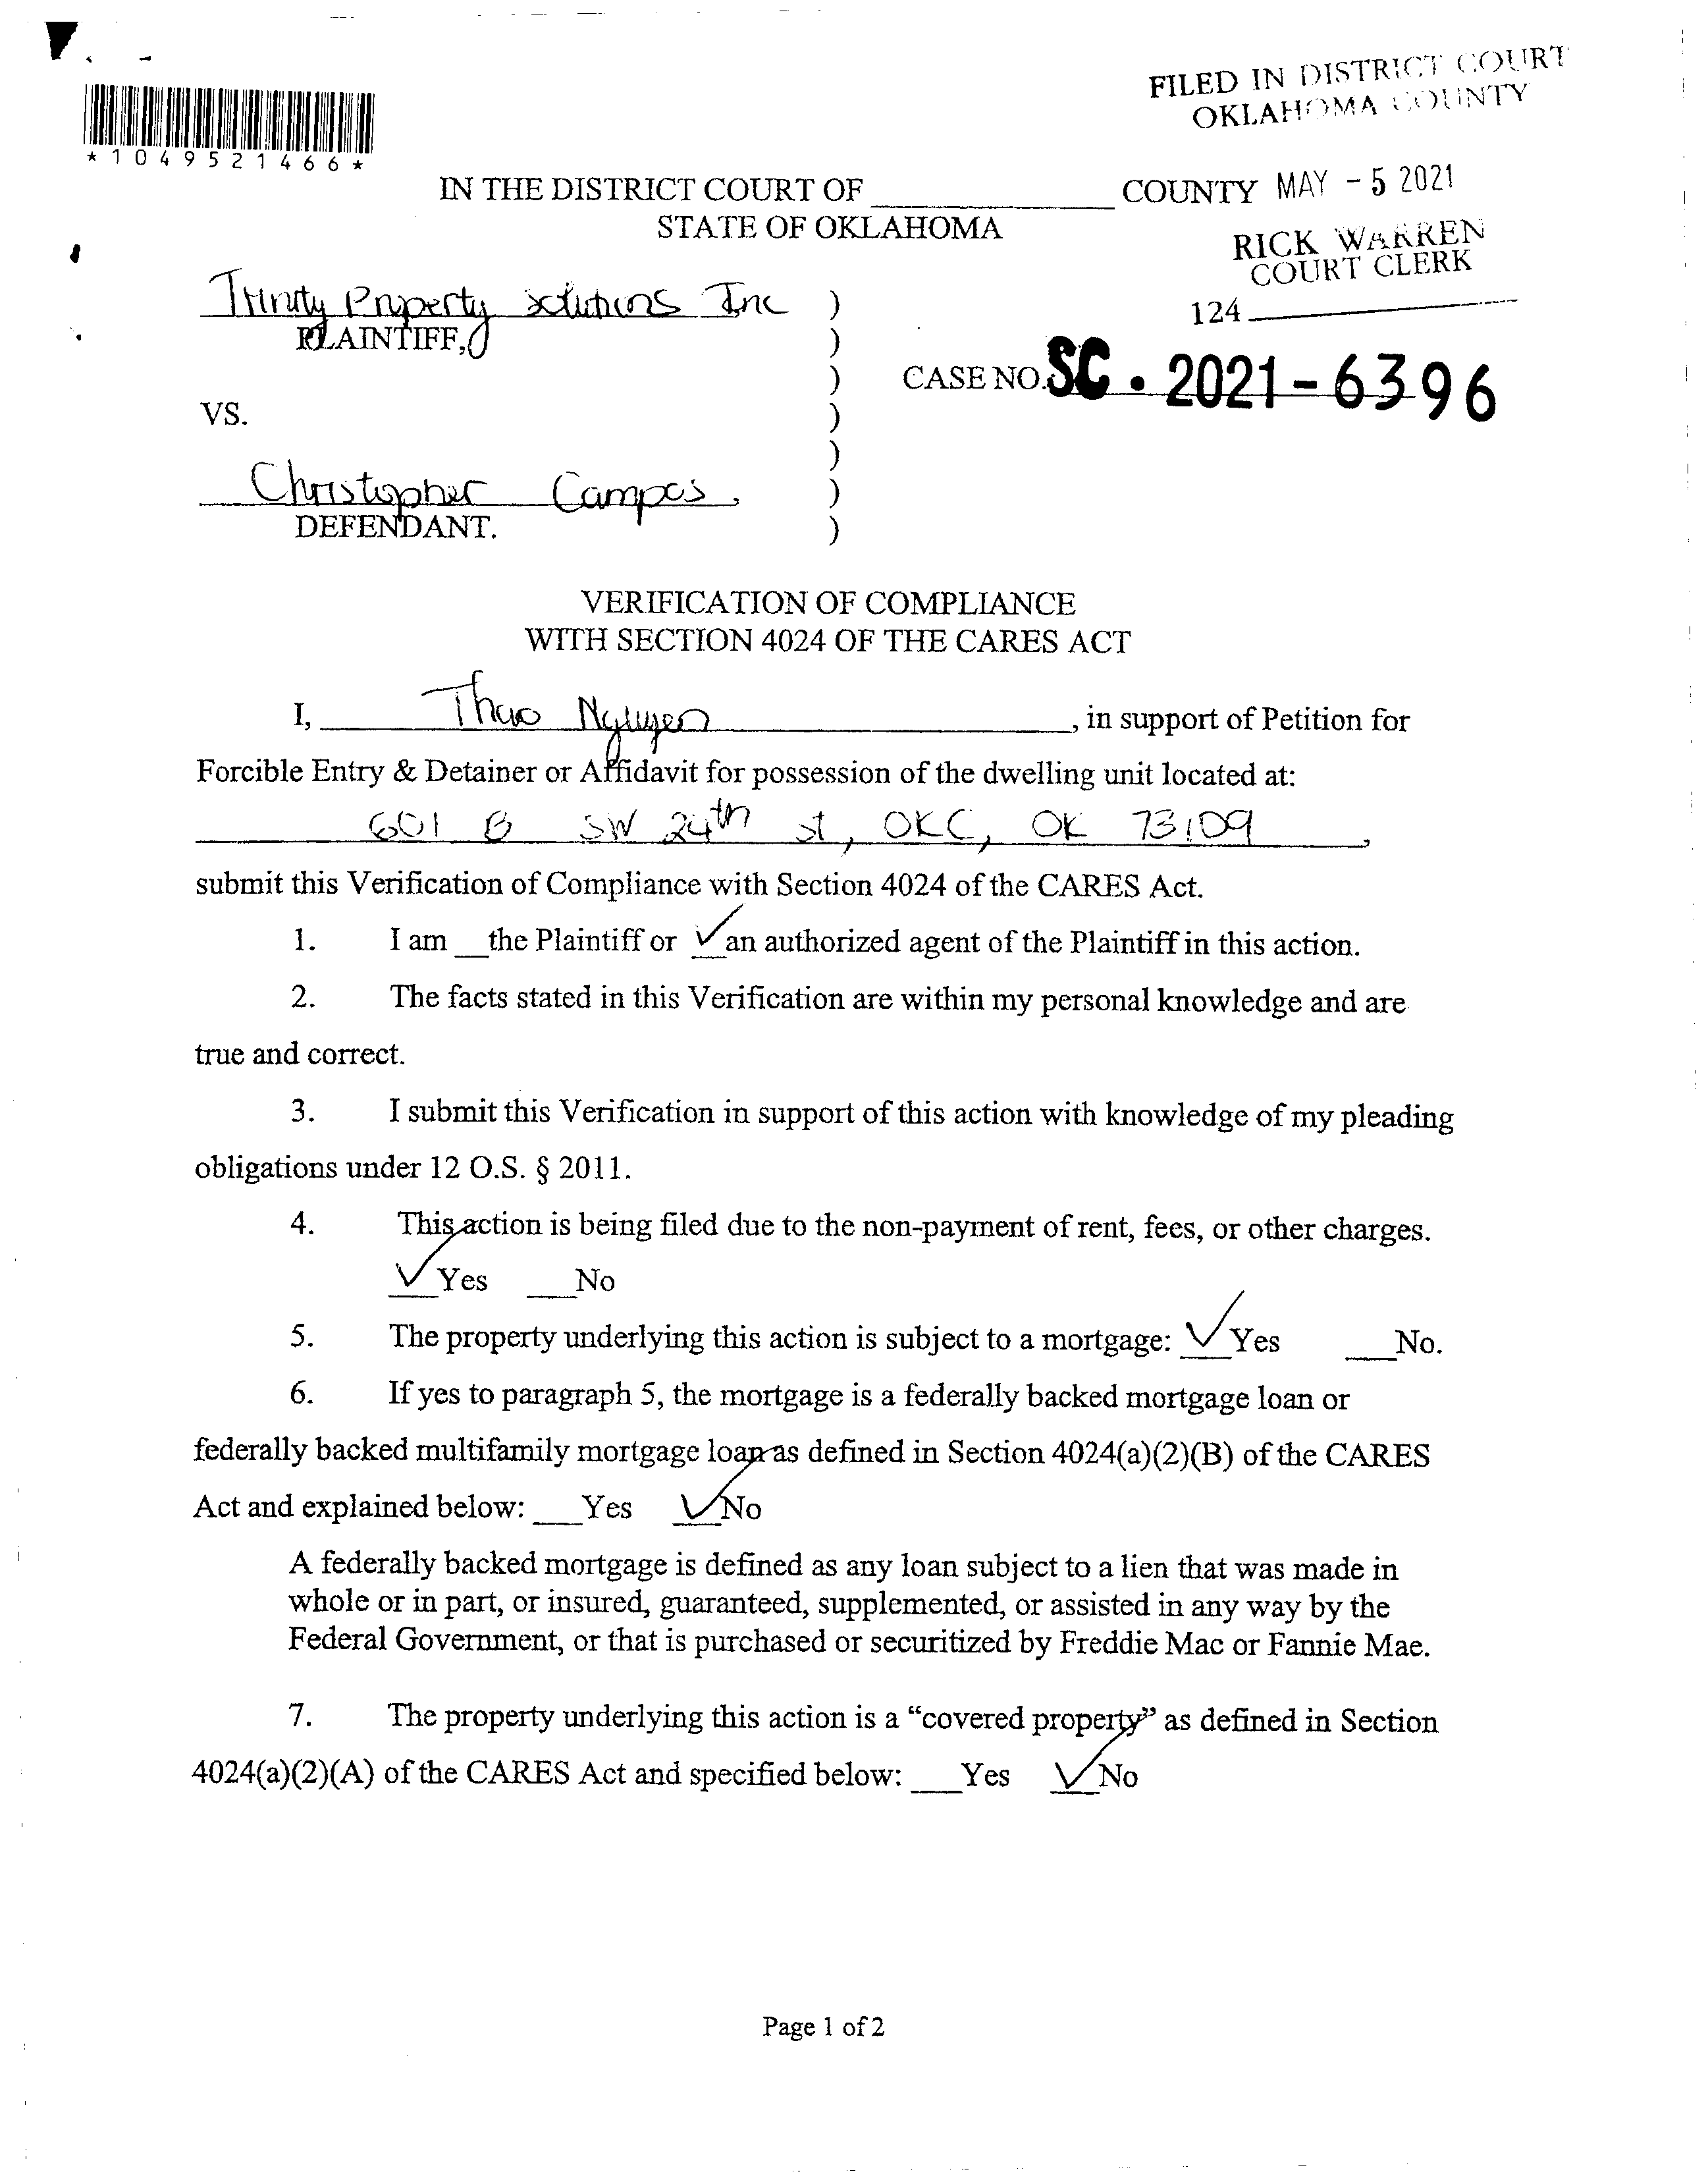 FILED IN DISTRICT COURT
OKLAHOMA COUNTY
*1049521466*
IN THE DISTRICT COURT OF ______________ COUNTY MAY - 5 2021
STATE OF OKLAHOMA
RICK WARREN
COURT CLERK
124
Trinity Property solutions Inc )
PLAINTIFF, )
) CASE NO. SC • 2021-6396
VS. )
)
Christopher Campos, )
DEFENDANT. )
VERIFICATION OF COMPLIANCE
WITH SECTION 4024 OF THE CARES ACT
I, Thao Nguyen, in support of Petition for
Forcible Entry & Detainer or Affidavit for possession of the dwelling unit located at:
601 B SW 24th st, OKC, OK 73109,
submit this Verification of Compliance with Section 4024 of the CARES Act.
1. I am __the Plaintiff or ✓an authorized agent of the Plaintiff in this action.
2. The facts stated in this Verification are within my personal knowledge and are
true and correct.
3. I submit this Verification in support of this action with knowledge of my pleading
obligations under 12 O.S. § 2011.
4. This action is being filed due to the non-payment of rent, fees, or other charges.
✓Yes ___No
5. The property underlying this action is subject to a mortgage: ✓Yes ___No.
6. If yes to paragraph 5, the mortgage is a federally backed mortgage loan or
federally backed multifamily mortgage loan as defined in Section 4024(a)(2)(B) of the CARES
Act and explained below: ___Yes ✓No
A federally backed mortgage is defined as any loan subject to a lien that was made in
whole or in part, or insured, guaranteed, supplemented, or assisted in any way by the
Federal Government, or that is purchased or securitized by Freddie Mac or Fannie Mae.
7. The property underlying this action is a “covered property” as defined in Section
4024(a)(2)(A) of the CARES Act and specified below: ___Yes ✓No
Page 1 of 2